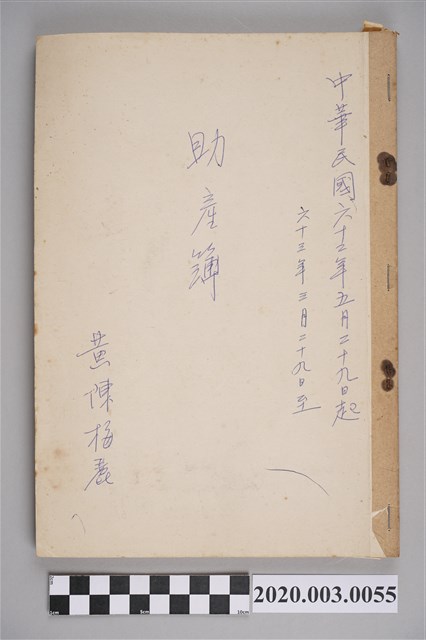 中華民國六十二年五月二十九日起
六十三年三月二十九日至
助產簿
黃陳梅麗
1cm 5cm 10cm
2020.003.0055